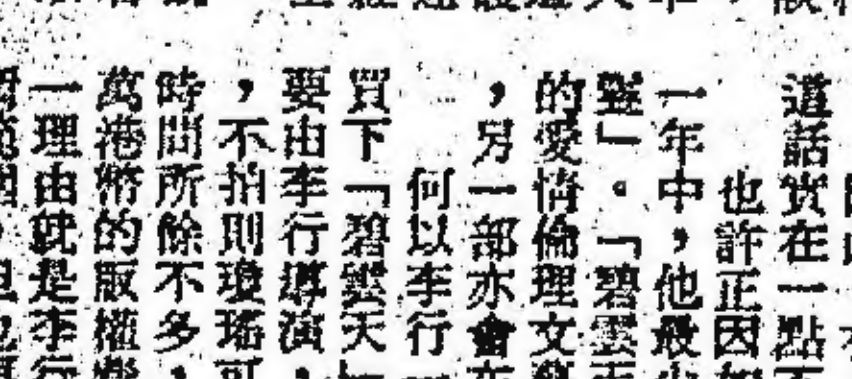 道話實在一點不
也許正因如
一年中，他最少
聲」。「碧雲天
的愛情倫理文藝
，另一部亦會在
何以李行
買下「碧雲天」
要由李行導演，
，不拍則瓊瑤可
時間所餘不多，
萬港幣的版權
一理由就是李行